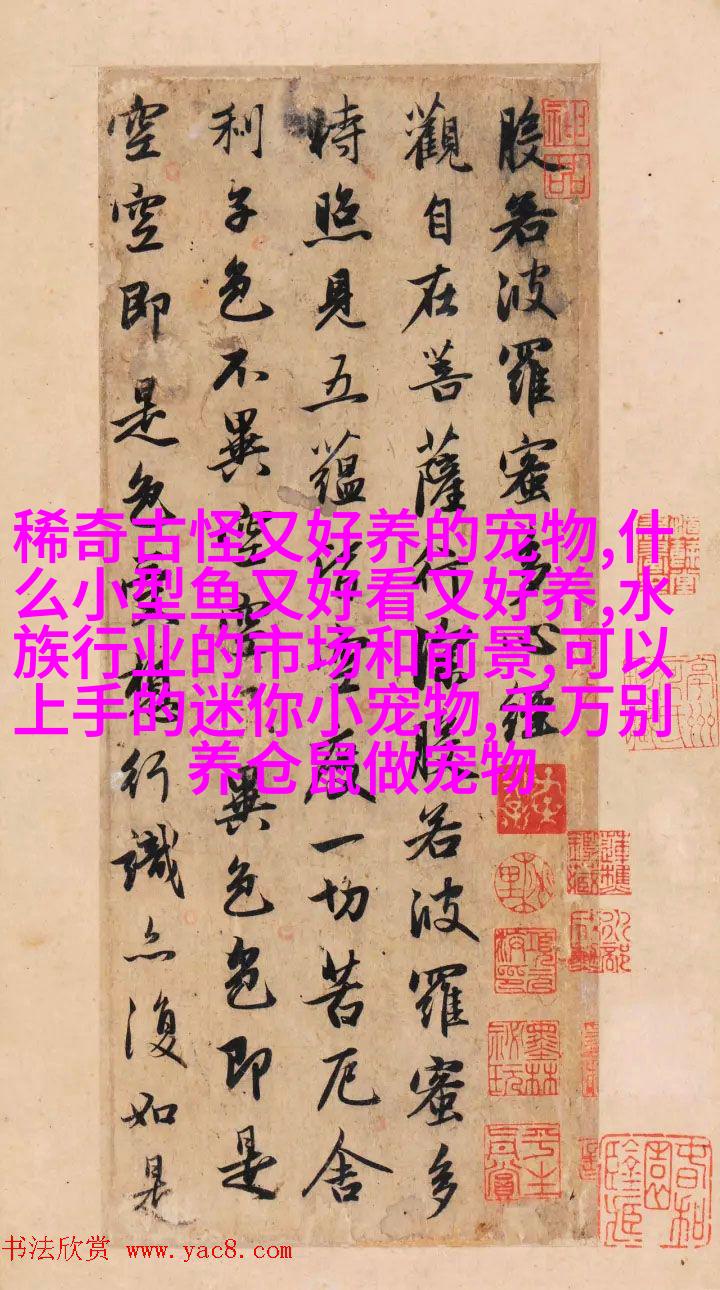 般若波羅蜜多心經
觀自在菩薩行深般若波羅蜜多
時照見五蘊皆空度一切苦厄舍
利子色不異空空不異色色即是
空空即是色受想行識亦復如是
神品
稀奇古怪又好养的宠物,什
么小型鱼又好看又好养,水
族行业的市场和前景,可以
上手的迷你小宠物,千万别
养仓鼠做宠物
书法欣赏 www.yac8.com